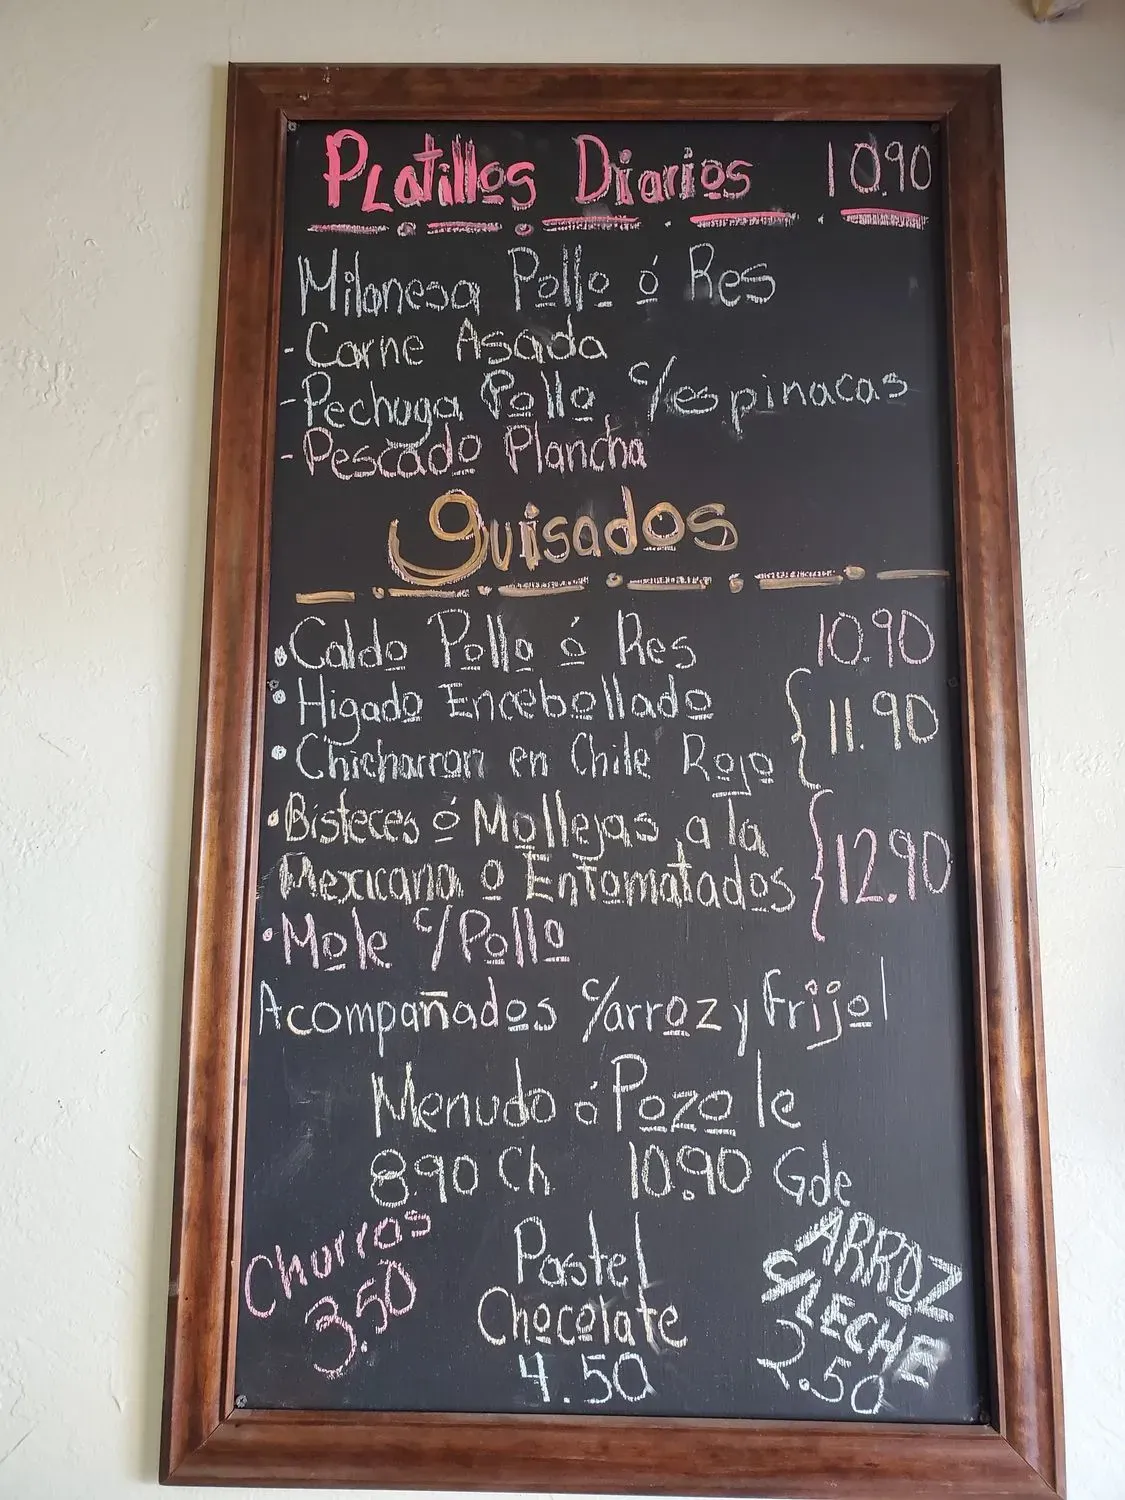 Platillos Diarios 10.90
Milanesa Pollo ó Res
- Carne Asada
- Pechuga Pollo c/espinacas
- Pescado Plancha
guisados
• Caldo Pollo ó Res 10.90
• Higado Encebollado
• Chicharron en Chile Rojo } 11.90
• Bisteces ó Mollejas a la
Mexicana o Entomatados } 12.90
• Mole c/Pollo
Acompañados c/arroz y frijol
Menudo ó Pozole
8.90 Ch 10.90 Gde
Churros
3.50
Pastel
Chocolate
4.50
ARROZ
c/LECHE
2.50